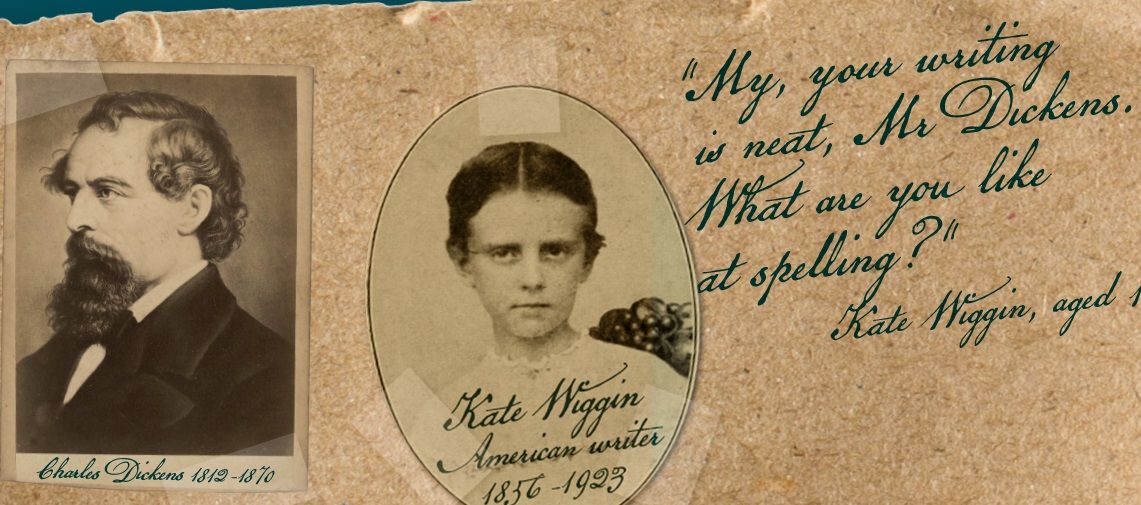 "My, your writing
is neat, Mr Dickens.
What are you like
at spelling?"
Kate Wiggin, aged 1
Kate Wiggin
American writer
1856-1923
Charles Dickens 1812-1870